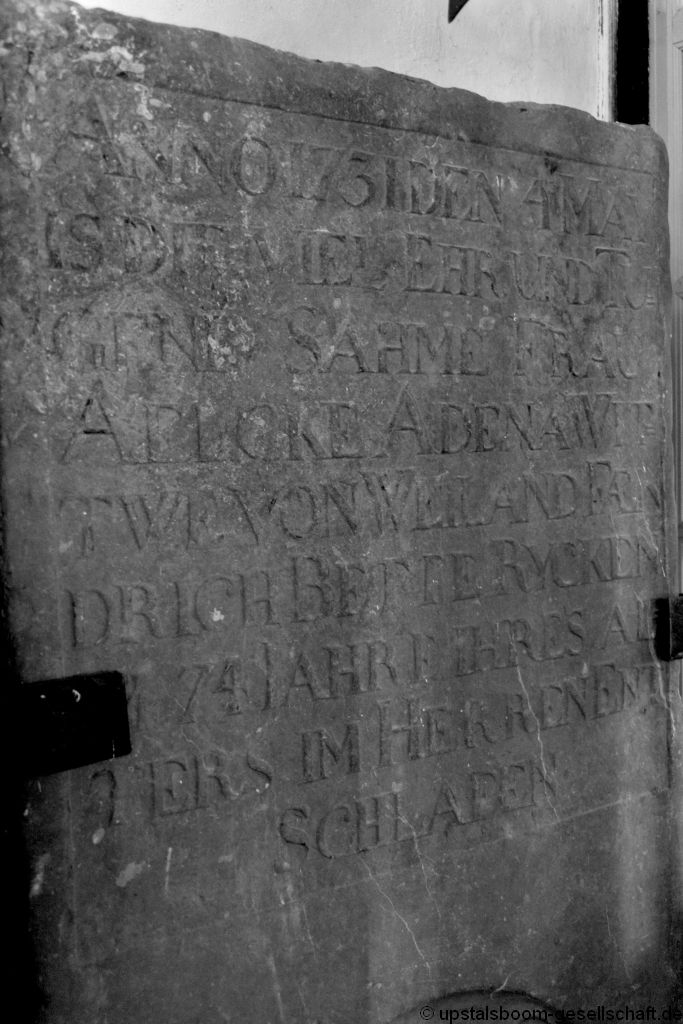 ANNO 1731 DEN 4 MAY
IS DIE VIEL EHR UND TU-
GEND SAHME FRAU
AELCKE ADENA WIT-
TWE VON WEILAND FÆN
DRICH BETTE RYCKEN
74 JAHRE IHRES AL
TERS IM HERREN ENT
SCHLAFEN
© upstalsboom-gesellschaft.de